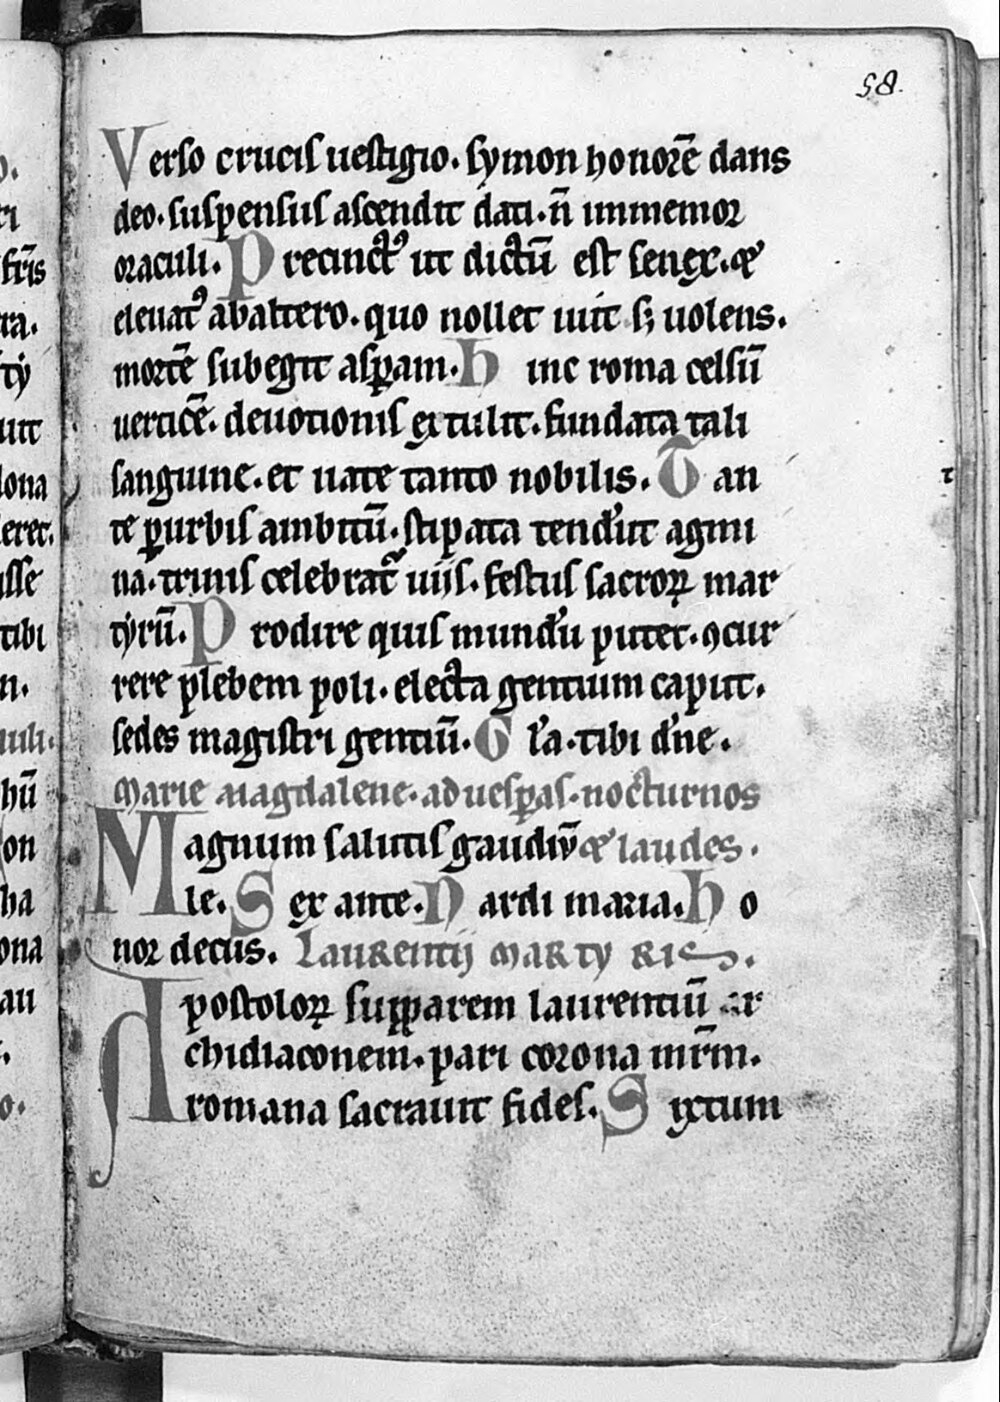 58.
Verso crucis uestigio. symon honorē dans
deo. suspensus ascendit dati. n̄ inmemor
oraculi. Precinctꝰ ut dictū est senex. &
eleuatꝰ abaltero. quo nollet iuit sꝫ uolens.
mortē subegit asꝑam. Hinc roma celsū
uerticē. deuotionis extulit. fundata tali
sanguine. et uate tanto nobilis. Tan
te ꝑurbis ambitū. stipata tendūt agmi
na. trinis celebrat᷑ uiis. festus sacroꝝ mar
tyrū. Prodire quis mundū putet. ꝯcur
rere plebem poli. electa gentium caput.
sedes magistri gentiū. Gl'a. tibi d'ne.
Marie Magdalene. ad uesꝑas. nocturnos
Magnum salutis gaudiū & laudes.
le. Sex ante. Nardi maria. Ho
nor decus. Laurentii martyris.
Apostoloꝝ suꝑparem laurentiū ar
chidiaconem. pari corona mr̄m.
romana sacrauit fides. Sixtum